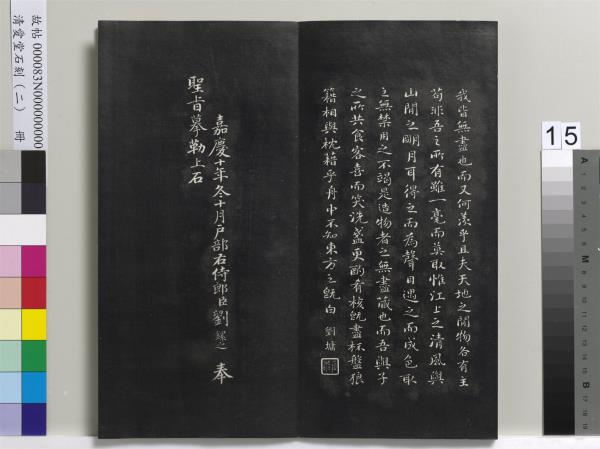 我皆無盡也而又何羨乎且夫天地之間物各有主
苟非吾之所有雖一毫而莫取惟江上之清風與
山間之明月耳得之而為聲目遇之而成色取
之無禁用之不竭是造物者之無盡藏也而吾與子
之所共食客喜而笑洗盞更酌肴核既盡杯盤狼
籍相與枕藉乎舟中不知東方之既白 劉墉
嘉慶十年冬十月戶部右侍郎臣劉鐶之奉
聖旨摹勒上石
故帖 000083N000000000
清愛堂石刻（二） 冊
15
A 1 2 3 4 5 6 M 8 9 10 11 12 13 14 15 B 17 18 19